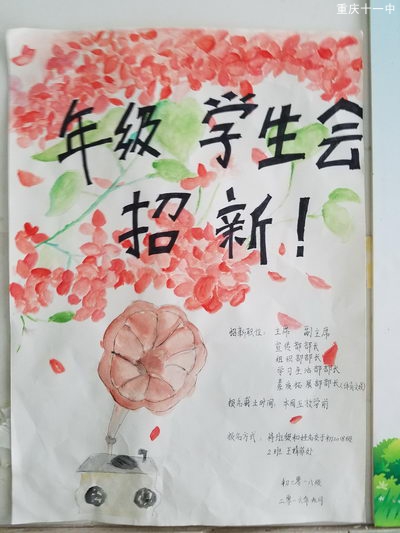 重庆十一中
年级 学生会
招 新!
招新职位: 主席 副主席
宣传部部长
组织部部长
学习生活部部长
素质拓展部部长(体育文娱)
报名截止时间: 本周五放学前
报名方式: 将班级和姓名交于初2018级
2班
初二零一八级
二零一六年九月